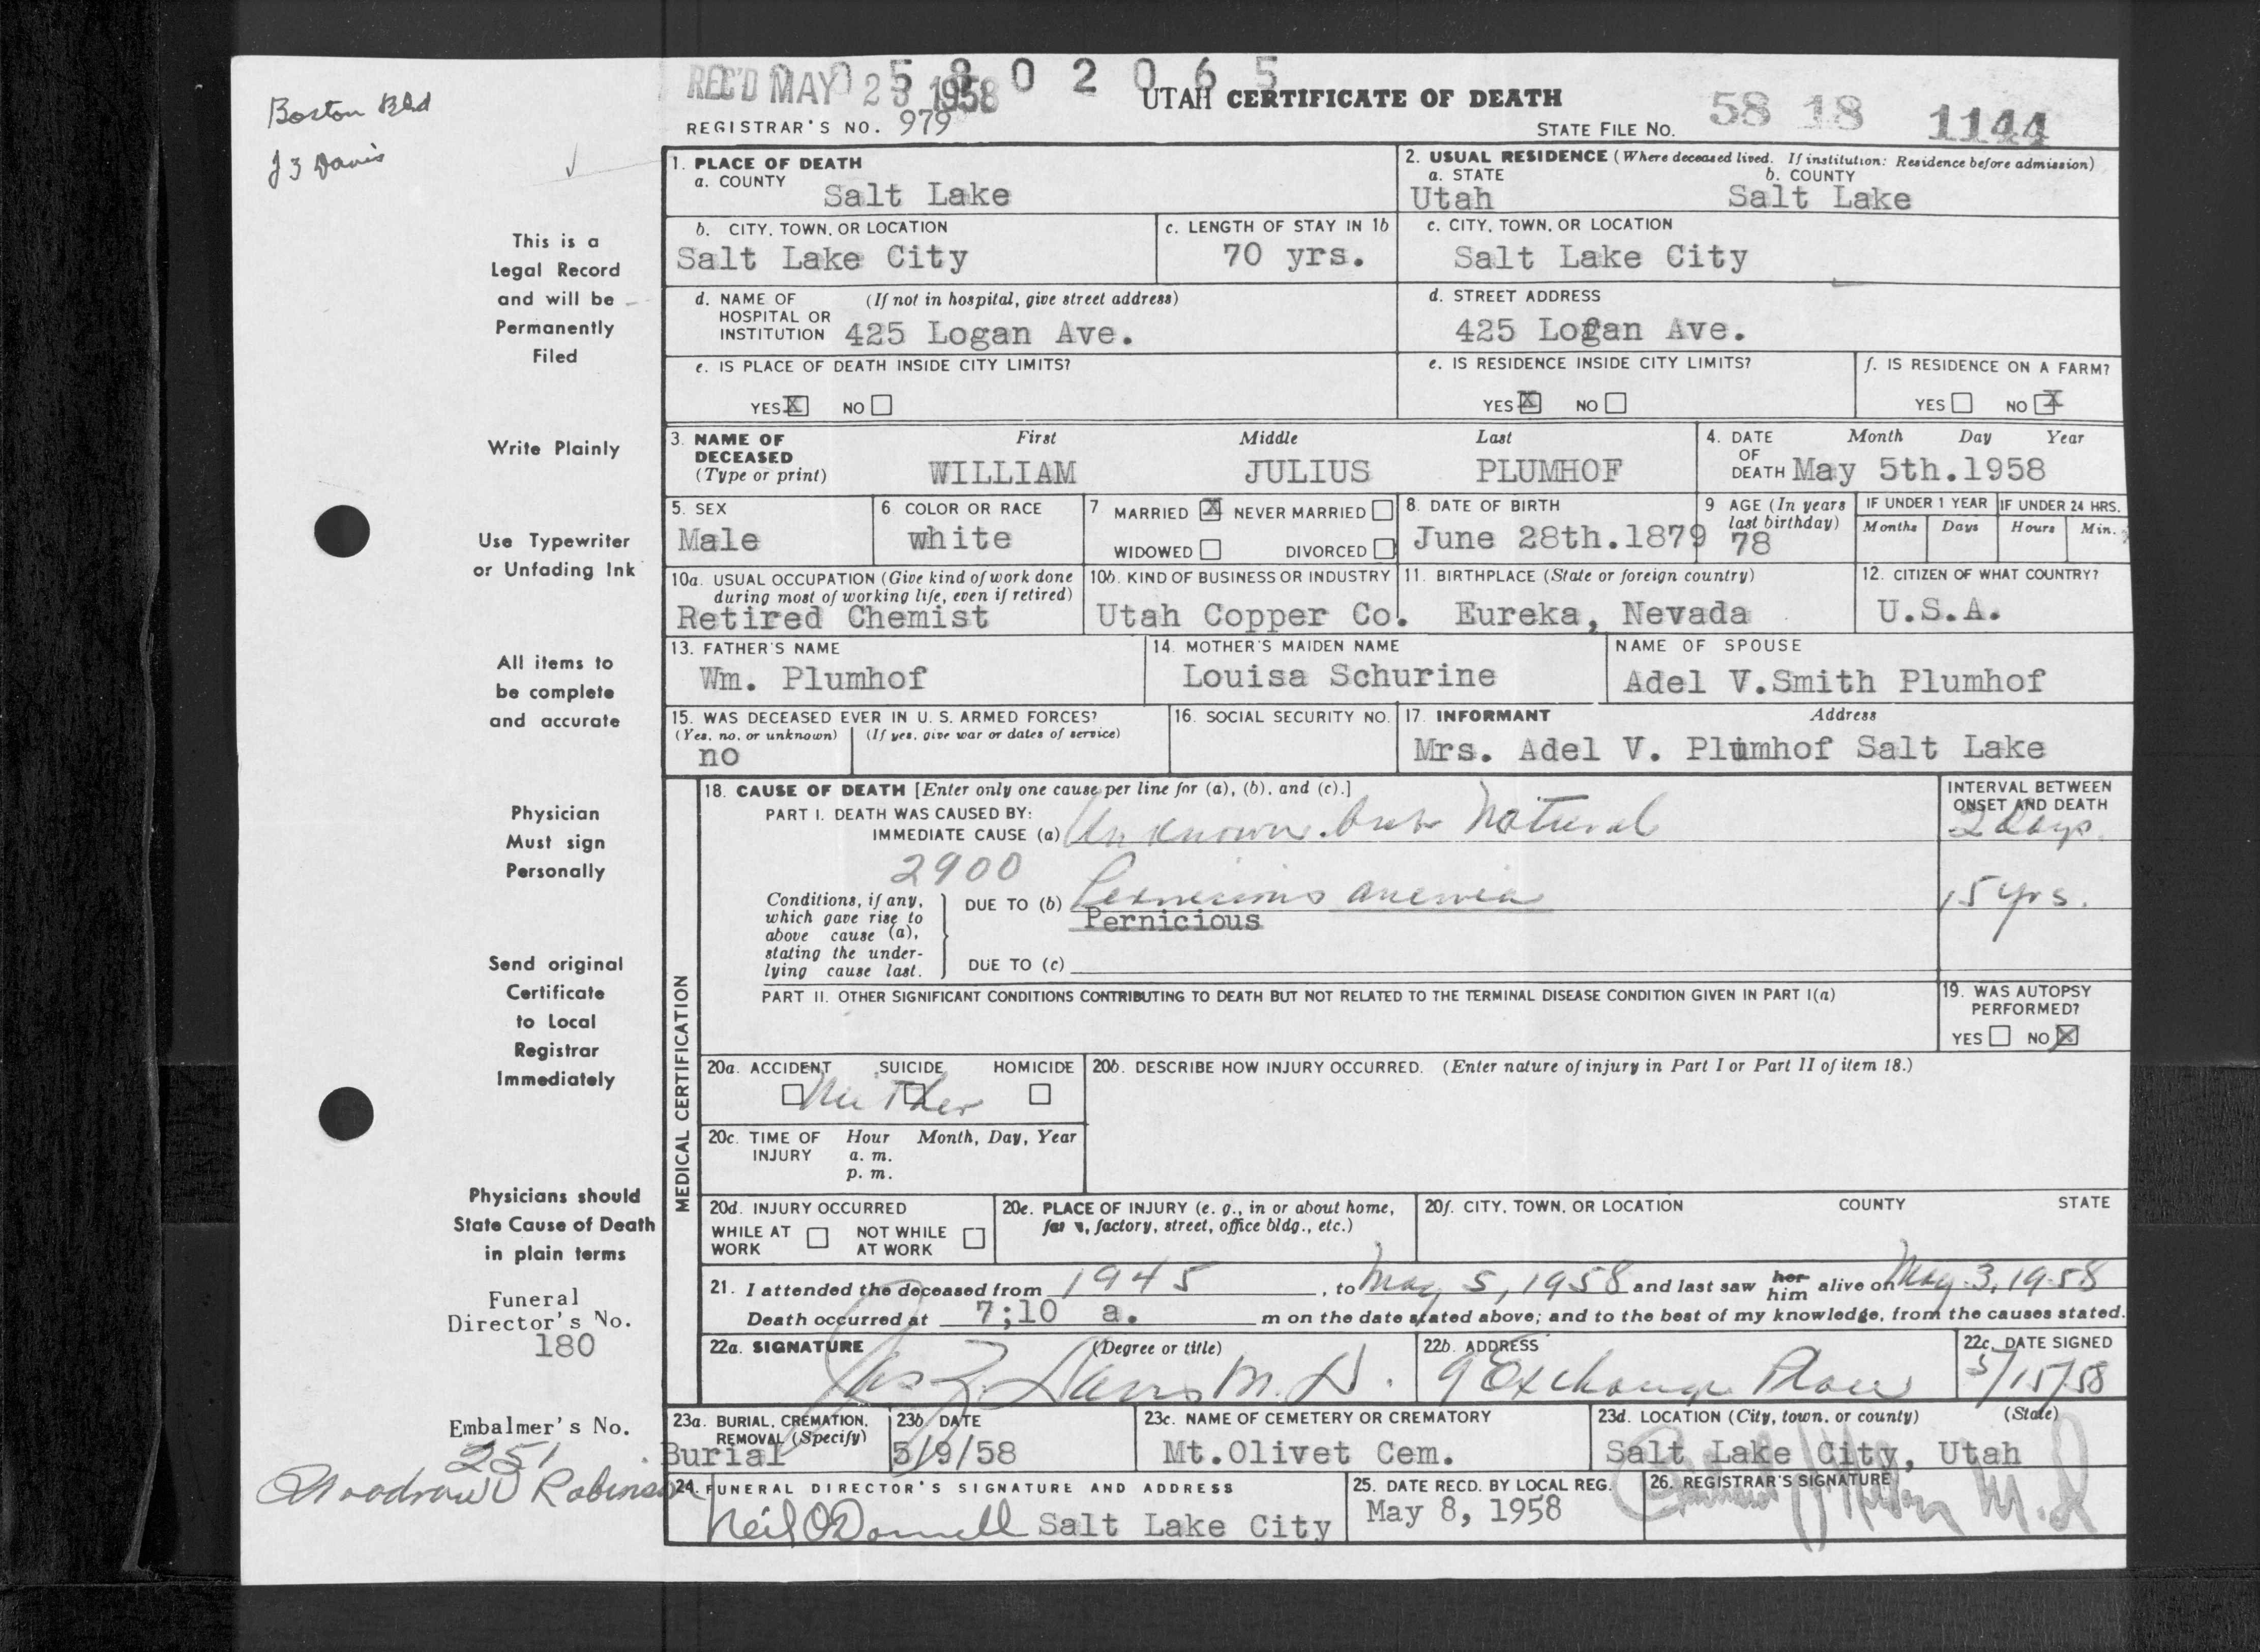 Boston Bld
J Z Davis
REC'D MAY 23 1958
0 5 8 0 2 0 6 5
UTAH CERTIFICATE OF DEATH
REGISTRAR'S NO. 979
STATE FILE NO. 58 18 1144
This is a
Legal Record
and will be
Permanently
Filed
Write Plainly
Use Typewriter
or Unfading Ink
All items to
be complete
and accurate
Physician
Must sign
Personally
Send original
Certificate
to Local
Registrar
Immediately
Physicians should
State Cause of Death
in plain terms
Funeral
Director's No.
180
Embalmer's No.
251
Woodrow D Robinson
1. PLACE OF DEATH
a. COUNTY
Salt Lake
2. USUAL RESIDENCE (Where deceased lived. If institution: Residence before admission)
a. STATE b. COUNTY
Utah Salt Lake
b. CITY, TOWN, OR LOCATION
Salt Lake City
c. LENGTH OF STAY IN 1b
70 yrs.
c. CITY, TOWN, OR LOCATION
Salt Lake City
d. NAME OF (If not in hospital, give street address)
HOSPITAL OR
INSTITUTION 425 Logan Ave.
d. STREET ADDRESS
425 Logan Ave.
e. IS PLACE OF DEATH INSIDE CITY LIMITS?
YES X NO
e. IS RESIDENCE INSIDE CITY LIMITS?
YES X NO
f. IS RESIDENCE ON A FARM?
YES NO X
3. NAME OF First Middle Last
DECEASED
(Type or print) WILLIAM JULIUS PLUMHOF
4. DATE Month Day Year
OF
DEATH May 5th.1958
5. SEX
Male
6 COLOR OR RACE
white
7 MARRIED X NEVER MARRIED
WIDOWED DIVORCED
8. DATE OF BIRTH
June 28th.1879
9 AGE (In years
last birthday)
78
IF UNDER 1 YEAR IF UNDER 24 HRS.
Months Days Hours Min.
10a. USUAL OCCUPATION (Give kind of work done
during most of working life, even if retired)
Retired Chemist
10b. KIND OF BUSINESS OR INDUSTRY
Utah Copper Co.
11. BIRTHPLACE (State or foreign country)
Eureka, Nevada
12. CITIZEN OF WHAT COUNTRY?
U.S.A.
13. FATHER'S NAME
Wm. Plumhof
14. MOTHER'S MAIDEN NAME
Louisa Schurine
NAME OF SPOUSE
Adel V.Smith Plumhof
15. WAS DECEASED EVER IN U. S. ARMED FORCES?
(Yes, no, or unknown) (If yes, give war or dates of service)
no
16. SOCIAL SECURITY NO.
17. INFORMANT Address
Mrs. Adel V. Plumhof Salt Lake
MEDICAL CERTIFICATION
18. CAUSE OF DEATH [Enter only one cause per line for (a), (b), and (c).]
PART I. DEATH WAS CAUSED BY:
IMMEDIATE CAUSE (a) Unknown but Natural
INTERVAL BETWEEN
ONSET AND DEATH
2 Days
2900
Conditions, if any,
which gave rise to
above cause (a),
stating the under-
lying cause last.
DUE TO (b) Pernicious anemia
Pernicious
15 yrs.
DUE TO (c)
PART II. OTHER SIGNIFICANT CONDITIONS CONTRIBUTING TO DEATH BUT NOT RELATED TO THE TERMINAL DISEASE CONDITION GIVEN IN PART I(a)
19. WAS AUTOPSY
PERFORMED?
YES NO X
20a. ACCIDENT SUICIDE HOMICIDE
Neither
20b. DESCRIBE HOW INJURY OCCURRED. (Enter nature of injury in Part I or Part II of item 18.)
20c. TIME OF Hour Month, Day, Year
INJURY a. m.
p. m.
20d. INJURY OCCURRED
WHILE AT NOT WHILE
WORK AT WORK
20e. PLACE OF INJURY (e. g., in or about home,
farm, factory, street, office bldg., etc.)
20f. CITY, TOWN, OR LOCATION COUNTY STATE
21. I attended the deceased from 1945, to May 5, 1958 and last saw her him alive on May 3, 1958
Death occurred at 7;10 a. m on the date stated above; and to the best of my knowledge, from the causes stated.
22a. SIGNATURE (Degree or title)
Jas Z. Davis M. D.
22b. ADDRESS
9 Exchange Place
22c. DATE SIGNED
5/15/58
23a. BURIAL, CREMATION,
REMOVAL (Specify)
Burial
23b. DATE
5/9/58
23c. NAME OF CEMETERY OR CREMATORY
Mt.Olivet Cem.
23d. LOCATION (City, town, or county) (State)
Salt Lake City, Utah
24. FUNERAL DIRECTOR'S SIGNATURE AND ADDRESS
Neil O'Donnell Salt Lake City
25. DATE RECD. BY LOCAL REG.
May 8, 1958
26. REGISTRAR'S SIGNATURE
M. D